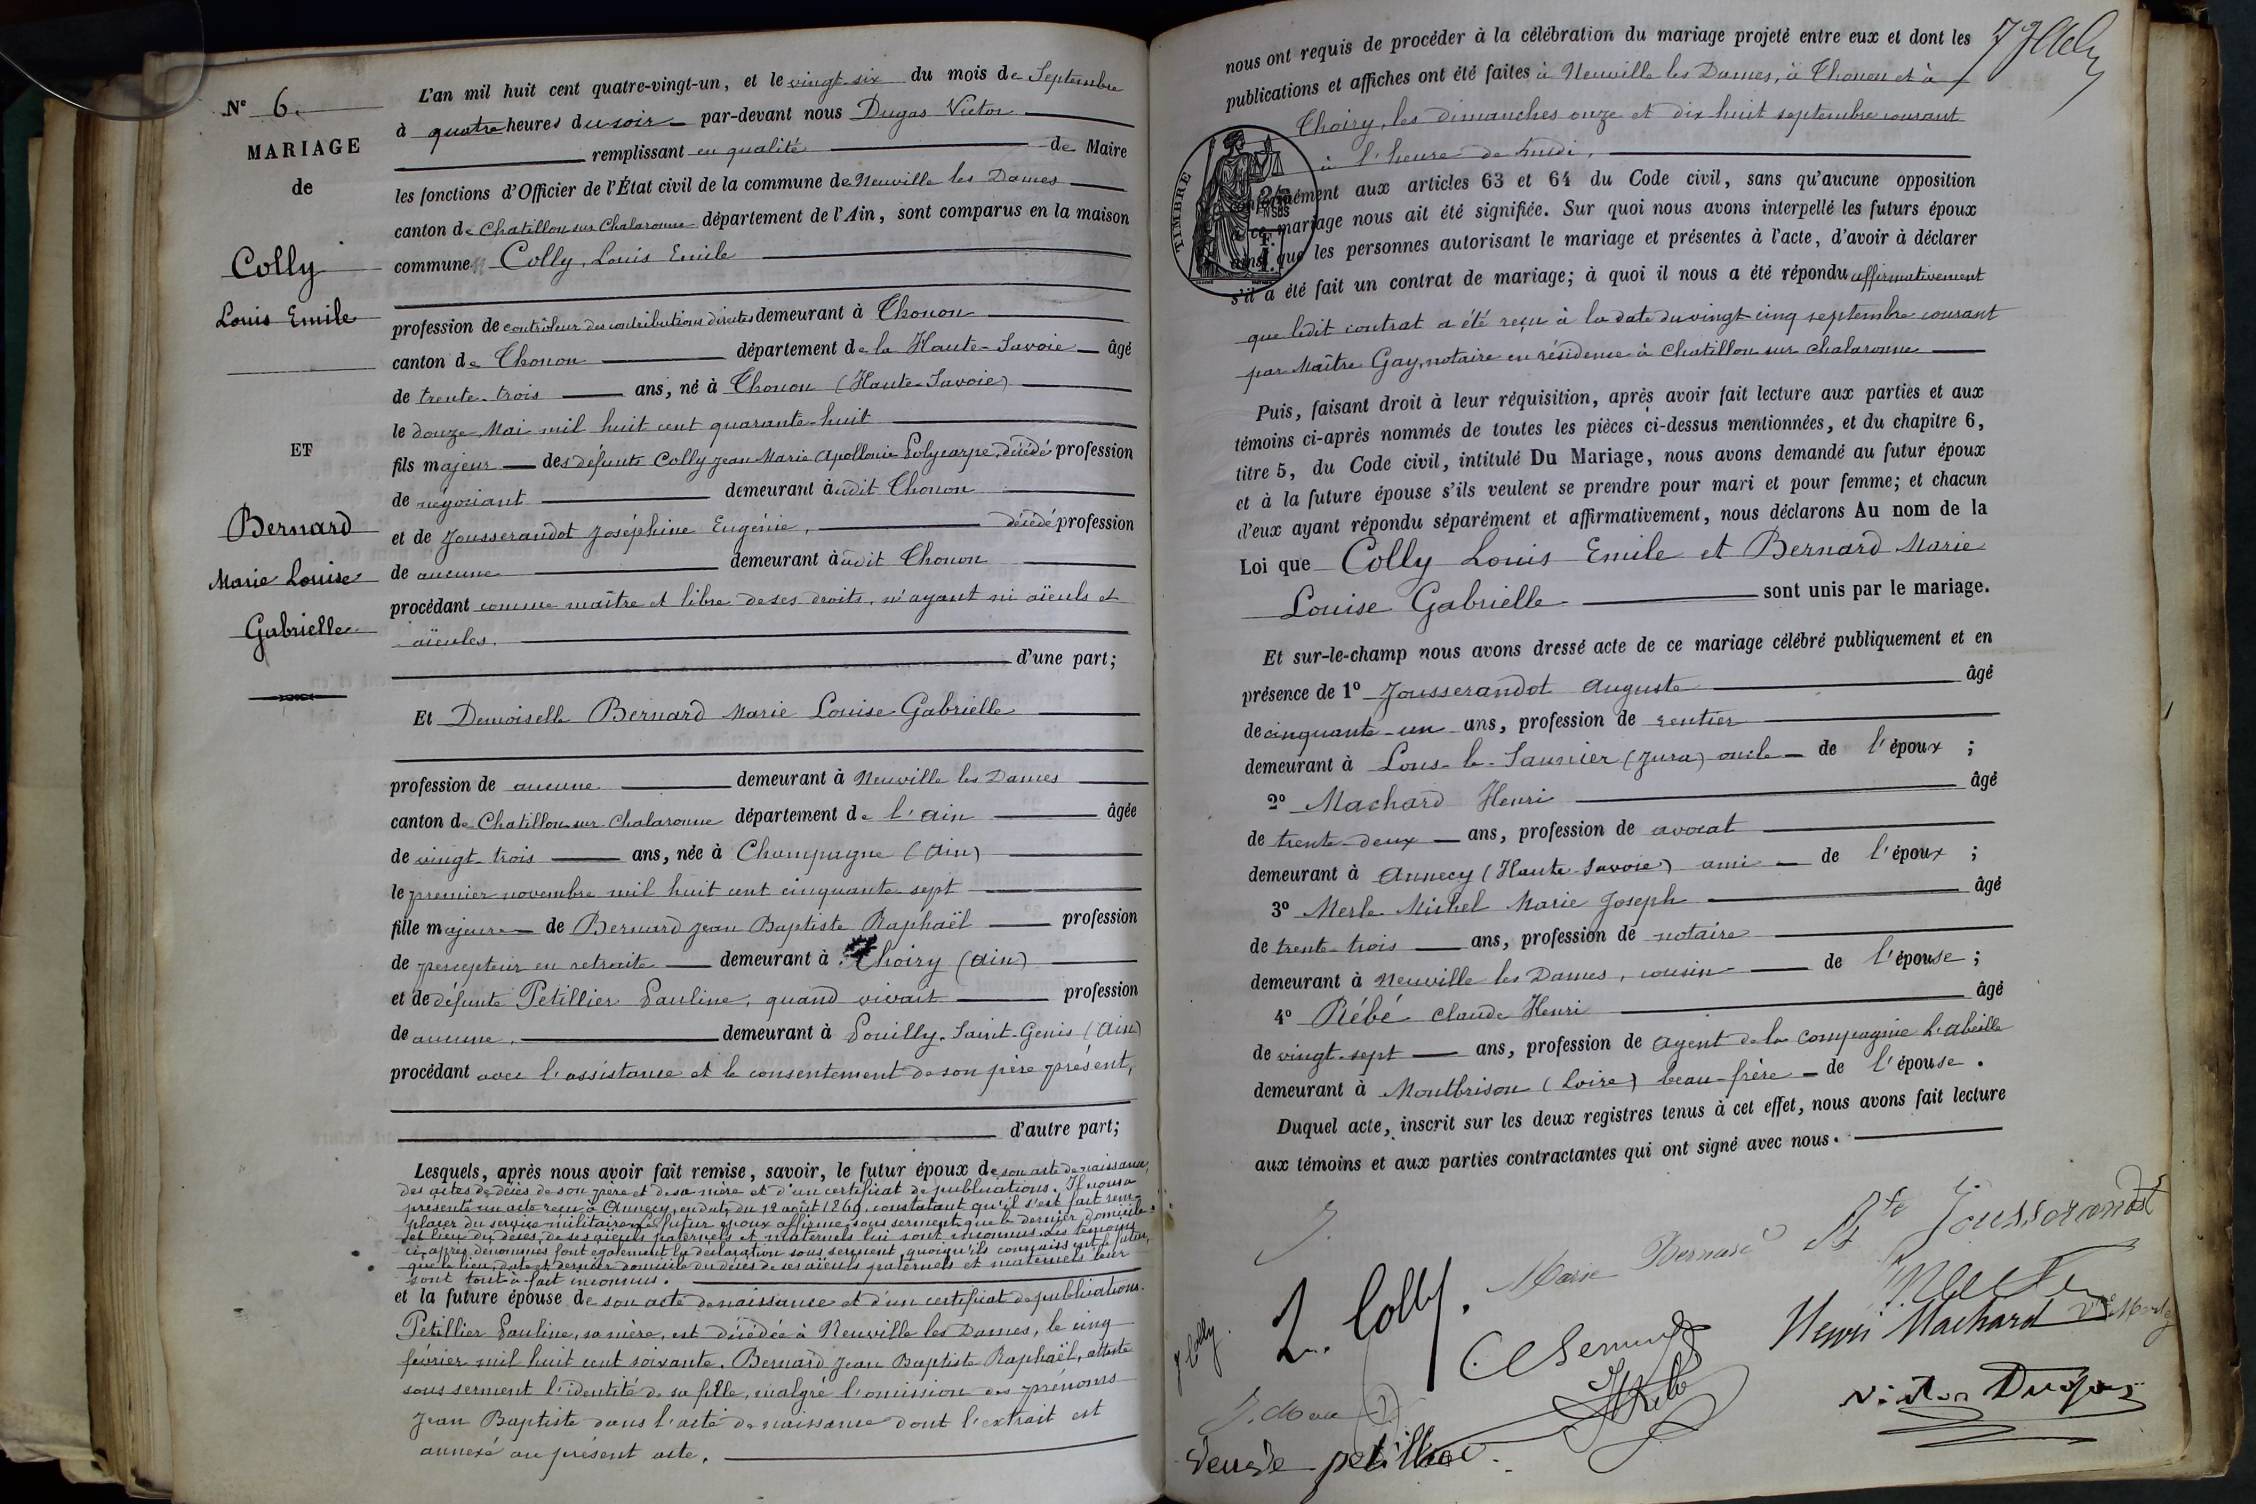 N° 6.
MARIAGE
de
Colly
Louis Emile
ET
Bernard
Marie Louise
Gabrielle
L'an mil huit cent quatre-vingt-un, et le vingt-six du mois de Septembre
à quatre heures du soir par-devant nous Dugas Victor
remplissant en qualité de Maire
les fonctions d'Officier de l'État civil de la commune de Neuville les Dames
canton de Chatillon sur Chalaronne département de l'Ain, sont comparus en la maison
commune Colly, Louis Emile
profession de contrôleur des contributions directes demeurant à Thonon
canton de Thonon département de la Haute-Savoie âgé
de trente-trois ans, né à Thonon (Haute-Savoie)
le douze Mai mil huit cent quarante-huit
fils majeur des défunts Colly Jean Marie Apollonie Polycarpe, décédé profession
de négociant demeurant à udit Thonon
et de Jousserandot Joséphine Eugénie, décédé profession
de aucune demeurant à udit Thonon
procédant comme maître et libre de ses droits, n'ayant ni aïeuls et
aïeules.
d'une part;
Et Demoiselle Bernard Marie Louise Gabrielle
profession de aucune demeurant à Neuville les Dames
canton de Chatillon sur Chalaronne département de l'Ain âgée
de vingt-trois ans, née à Champagne (Ain)
le premier novembre mil huit cent cinquante-sept
fille majeure de Bernard Jean Baptiste Raphaël profession
de percepteur en retraite demeurant à Thoiry (Ain)
et de défunte Petillier Pauline, quand vivait profession
de aucune, demeurant à Pouilly-Saint-Genis (Ain)
procédant avec l'assistance et le consentement de son père présent,
d'autre part;
Lesquels, après nous avoir fait remise, savoir, le futur époux de son acte de naissance,
des actes de décès de son père et de sa mère et d'un certificat de publications. Il nous a
présenté un acte reçu à Annecy, en date du 12 août 1869, constatant qu'il s'est fait rem-
placer du service militaire. Le futur époux affirme sous serment que le dernier domicile
et lieu du décès, de ses aïeuls paternels et maternels lui sont inconnus. Les témoins
ci-après dénommés font également la déclaration sous serment, quoiqu'ils connaissent le futur,
que le lieu, date et dernier domicile du décès de ses aïeuls paternels et maternels leur
sont tout à fait inconnus.
et la future épouse de son acte de naissance et d'un certificat de publications.
Petillier Pauline, sa mère, est décédée à Neuville les Dames, le cinq
février mil huit cent soixante. Bernard Jean Baptiste Raphaël, atteste
sous serment l'identité de sa fille, malgré l'omission des prénoms
Jean Baptiste dans l'acte de naissance dont l'extrait est
annexé au présent acte.
nous ont requis de procéder à la célébration du mariage projeté entre eux et dont les
publications et affiches ont été faites à Neuville les Dames, à Thonon et à
Thoiry, les dimanches onze et dix huit septembre courant
à l'heure de midi,
TIMBRE
conformément aux articles 63 et 64 du Code civil, sans qu'aucune opposition
à ce mariage nous ait été signifiée. Sur quoi nous avons interpellé les futurs époux
ainsi que les personnes autorisant le mariage et présentes à l'acte, d'avoir à déclarer
s'il a été fait un contrat de mariage; à quoi il nous a été répondu affirmativement
que ledit contrat a été reçu à la date du vingt-cinq septembre courant
par Maître Gay, notaire en résidence à Chatillon sur Chalaronne
Puis, faisant droit à leur réquisition, après avoir fait lecture aux parties et aux
témoins ci-après nommés de toutes les pièces ci-dessus mentionnées, et du chapitre 6,
titre 5, du Code civil, intitulé Du Mariage, nous avons demandé au futur époux
et à la future épouse s'ils veulent se prendre pour mari et pour femme; et chacun
d'eux ayant répondu séparément et affirmativement, nous déclarons Au nom de la
Loi que Colly Louis Emile et Bernard Marie
Louise Gabrielle sont unis par le mariage.
Et sur-le-champ nous avons dressé acte de ce mariage célébré publiquement et en
présence de 1° Jousserandot Auguste âgé
de cinquante-un ans, profession de rentier
demeurant à Lons-le-Saunier (Jura) oncle de l'époux;
2° Machard Henri âgé
de trente-deux ans, profession de avocat
demeurant à Annecy (Haute-Savoie) ami de l'époux;
3° Merle Michel Marie Joseph âgé
de trente-trois ans, profession de notaire
demeurant à Neuville les Dames, cousin de l'épouse;
4° Rébé Claude Henri âgé
de vingt-sept ans, profession de agent de la compagnie L'abeille
demeurant à Montbrison (Loire) beau-frère de l'épouse.
Duquel acte, inscrit sur les deux registres tenus à cet effet, nous avons fait lecture
aux témoins et aux parties contractantes qui ont signé avec nous.
Jousserandot
Marie Bernard
L. Colly.
Henri Machard
J Colly.
Victor Dugas
veuve petillier